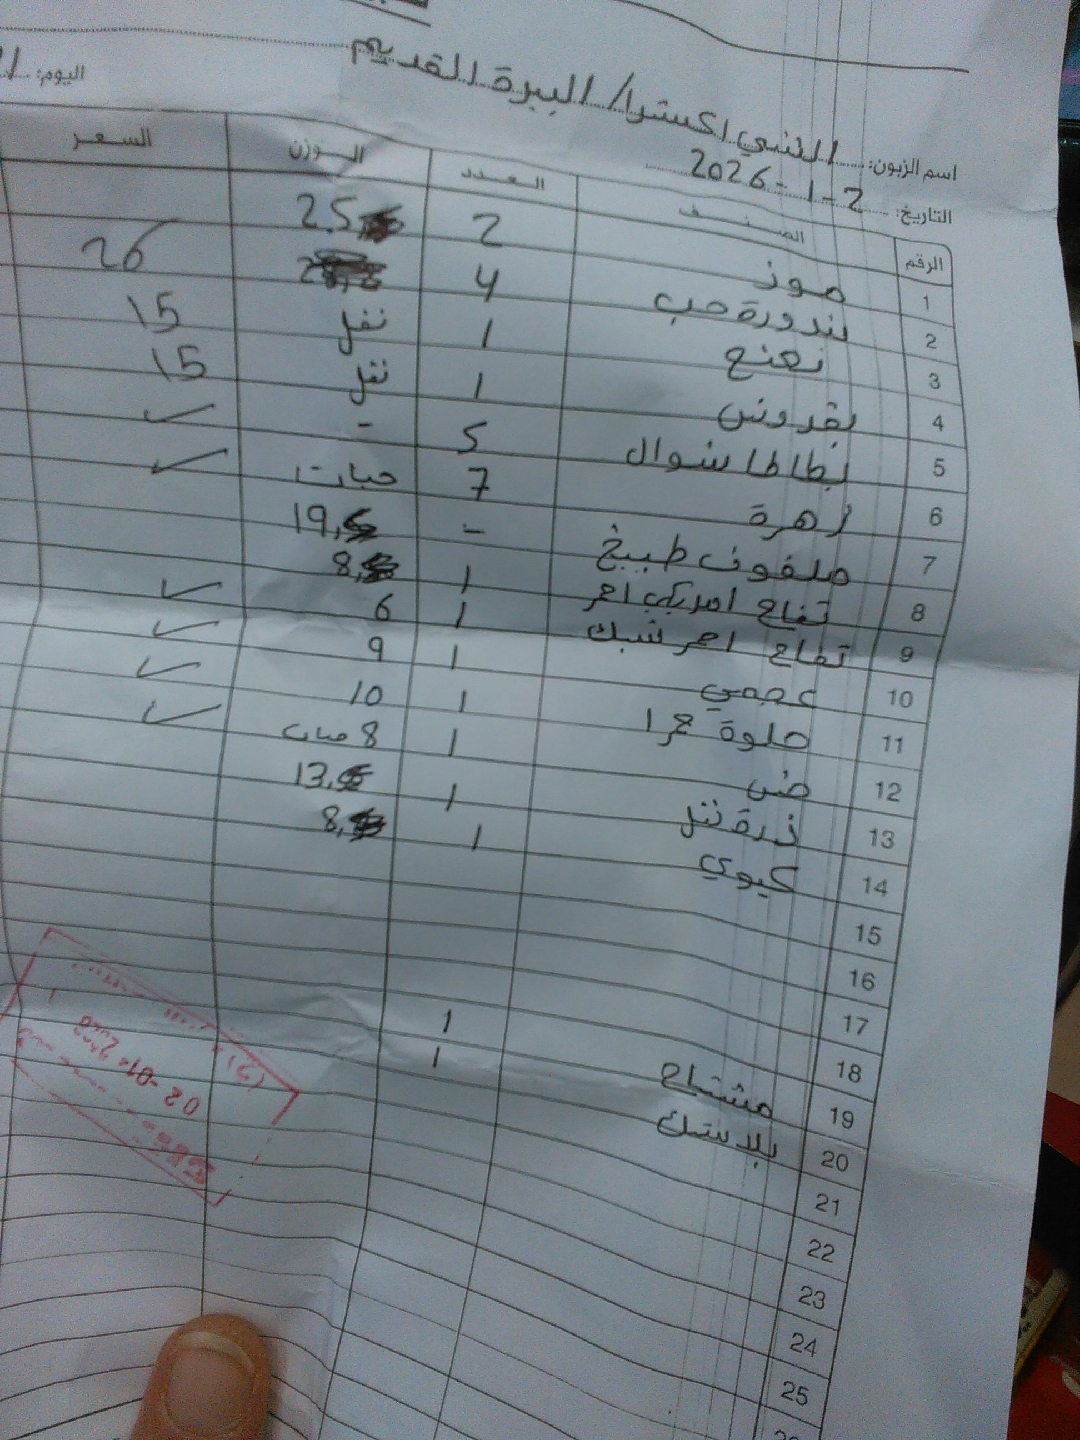 اسم الزبون: / البيرة القديم
اليوم:
التاريخ: 2-1-2026
الرقم الصنف العدد الوزن السعر
1 موز 2 25
2 بندورة حب 4 26
3 نعنع 1 نفل 15
4 بقدونس 1 نتل 15
5 بطاطا شوال 5 -
6 زهرة 7 حبات
7 ملفوف طبيخ - 19,
8 تفاح امريكي احمر 1 8,
9 تفاح احمر شبك 1 6
10 عجمي 1 9
11 حلوة حمرا 1 10
12 خس 1 8 حبات
13 ذرة نتل 1 13,
14 كيوي 1 8,
15
16
17
18
19 مشتاح 1
20 بلاستك 1
21
22
23
24
25